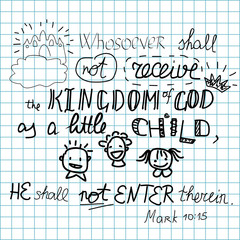 Whosoever shall
not receive
the KINGDOM of GOD
as a little CHILD,
HE shall not ENTER therein.
Mark 10:15